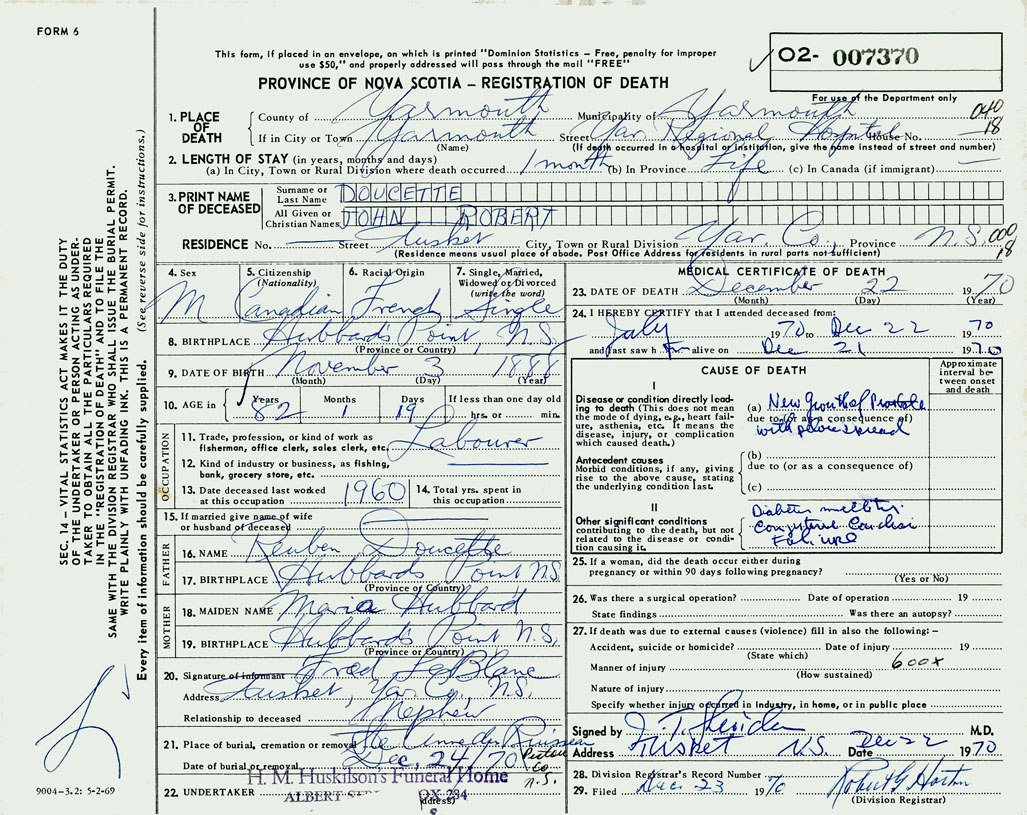 FORM 6
This form, if placed in an envelope, on which is printed "Dominion Statistics – Free, penalty for improper
use $50," and properly addressed will pass through the mail "FREE"
O2- 007370
For use of the Department only
PROVINCE OF NOVA SCOTIA – REGISTRATION OF DEATH
1. PLACE OF DEATH
County of Yarmouth Municipality of Yarmouth 040
If in City or Town Yarmouth Street Yar Regional Hospital House No. 18
(Name) (If death occurred in a hospital or institution, give the name instead of street and number)
2. LENGTH OF STAY (in years, months and days)
(a) In City, Town or Rural Division where death occurred 1 month (b) In Province Life (c) In Canada (if immigrant)
3. PRINT NAME OF DECEASED
Surname or Last Name DOUCETTE
All Given or Christian Names JOHN ROBERT
RESIDENCE No. Street Tusket City, Town or Rural Division Yar. Co., Province N.S. 000
18
(Residence means usual place of abode. Post Office Address for residents in rural parts not sufficient)
4. Sex M
5. Citizenship (Nationality) Canadian
6. Racial Origin French
7. Single, Married, Widowed or Divorced (write the word) Single
8. BIRTHPLACE Hubbard's Point, N.S.
(Province or Country)
9. DATE OF BIRTH November 3 1888
(Month) (Day) (Year)
10. AGE in Years 82 Months 1 Days 19 If less than one day old hrs. or min.
OCCUPATION
11. Trade, profession, or kind of work as
fisherman, office clerk, sales clerk, etc. Labourer
12. Kind of industry or business, as fishing,
bank, grocery store, etc.
13. Date deceased last worked
at this occupation 1960
14. Total yrs. spent in
this occupation
15. If married give name of wife
or husband of deceased
FATHER
16. NAME Reuben Doucette
17. BIRTHPLACE Hubbards Point N.S.
(Province or Country)
MOTHER
18. MAIDEN NAME Maria Hubbard
19. BIRTHPLACE Hubbard's Point N.S.
(Province or Country)
20. Signature of informant Fred LeBlanc
Address Tusket, Yar Co., N.S.
Relationship to deceased Nephew
21. Place of burial, cremation or removal
Date of burial or removal Dec. 24/70
Co
N.S.
22. UNDERTAKER
H. M. Huskilson's Funeral Home
ALBERT
(Address)
MEDICAL CERTIFICATE OF DEATH
23. DATE OF DEATH December 22 1970
(Month) (Day) (Year)
24. I HEREBY CERTIFY that I attended deceased from:
July 1970 to Dec 22 1970
and last saw him alive on Dec 21 1970
CAUSE OF DEATH
Approximate interval between onset and death
I
Disease or condition directly leading to death (This does not mean the mode of dying, e.g., heart failure, asthenia, etc. It means the disease, injury, or complication which caused death.)
(a) New Growth of Prostate
due to (or as a consequence of)
with spread
Antecedent causes
Morbid conditions, if any, giving rise to the above cause, stating the underlying condition last.
(b)
due to (or as a consequence of)
(c)
II
Other significant conditions
contributing to the death, but not related to the disease or condition causing it.
Diabetes mellitus
Congestive Cardiac
Failure
25. If a woman, did the death occur either during
pregnancy or within 90 days following pregnancy?
(Yes or No)
26. Was there a surgical operation? Date of operation 19
State findings Was there an autopsy?
27. If death was due to external causes (violence) fill in also the following:–
Accident, suicide or homicide? Date of injury 19
(State which)
Manner of injury 600x
(How sustained)
Nature of injury
Specify whether injury occurred in Industry, in home, or in public place
Signed by M.D.
Address Tusket N.S. Date Dec 22 1970
28. Division Registrar's Record Number
29. Filed Dec. 23 1970 Robert G Horton
(Division Registrar)
SEC. 14 – VITAL STATISTICS ACT MAKES IT THE DUTY
OF THE UNDERTAKER OR PERSON ACTING AS UNDER-
TAKER TO OBTAIN ALL THE PARTICULARS REQUIRED
IN THE "REGISTRATION OF DEATH" AND TO FILE THE
SAME WITH THE DIVISION REGISTRAR WHO SHALL ISSUE THE BURIAL PERMIT.
WRITE PLAINLY WITH UNFADING INK. THIS IS A PERMANENT RECORD.
Every item of information should be carefully supplied. (See reverse side for instructions.)
9004-3.2: 5-2-69